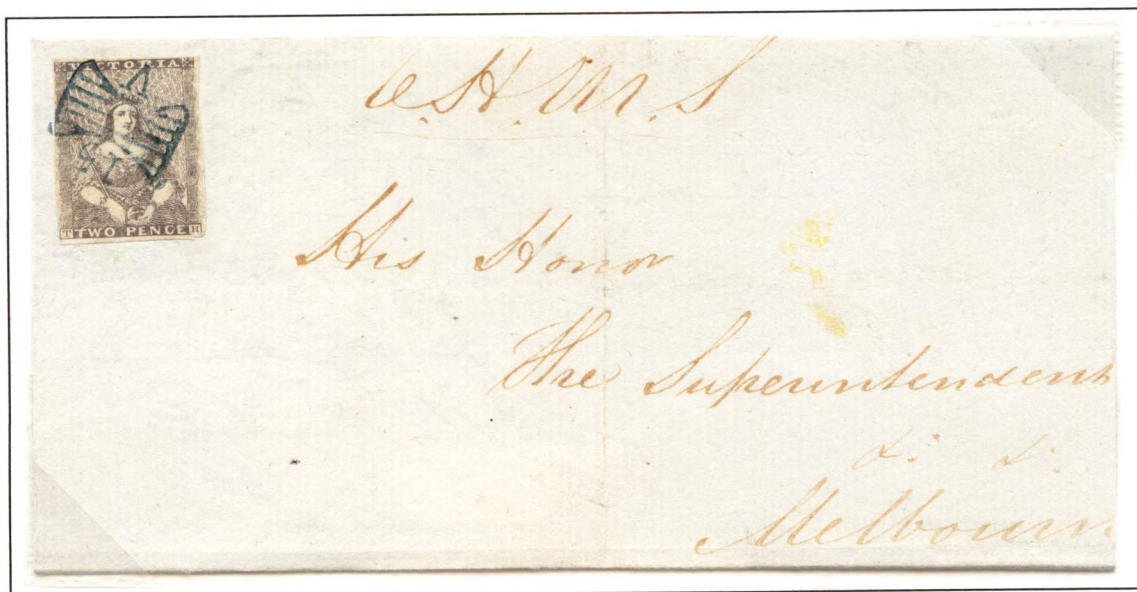 VICTORIA
T TWO PENCE H
O.H.M.S
His Honor
The Superintendent
&: &:
Melbourn